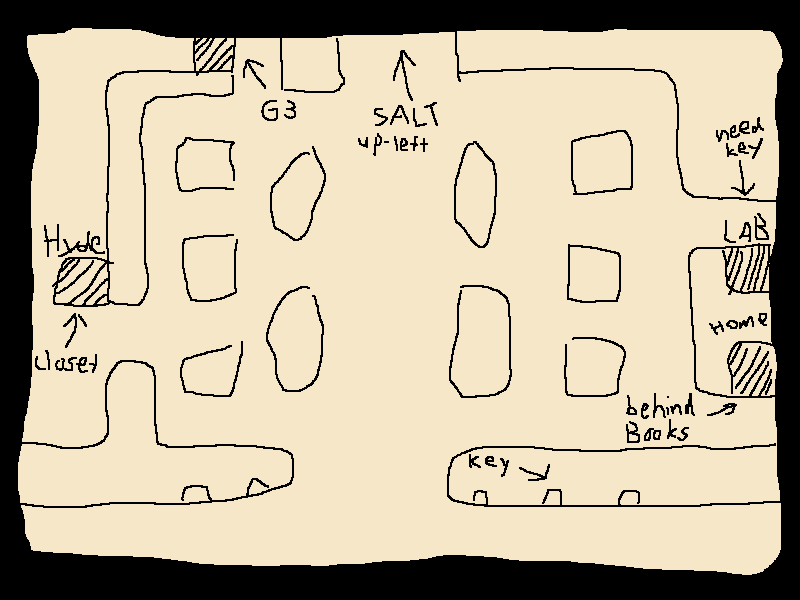 G3
SALT
up-left
need
key
Hyde
LAB
Home
closet
behind
Books
key